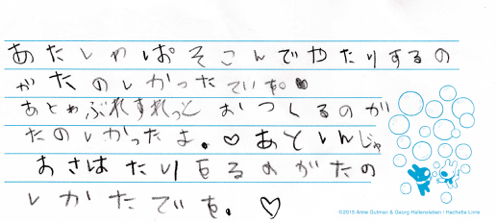 あたしゎぱそこんでやたりするの
がたのしかったでいす。♥
あとゎぶれすれっと おつくるのが
たのしかったよ。♡ あとしんじゃ
おさはたりをるのがたの
しかたでを。♡
©2015 Anne Gutman & Georg Hallensleben / Hachette Livre